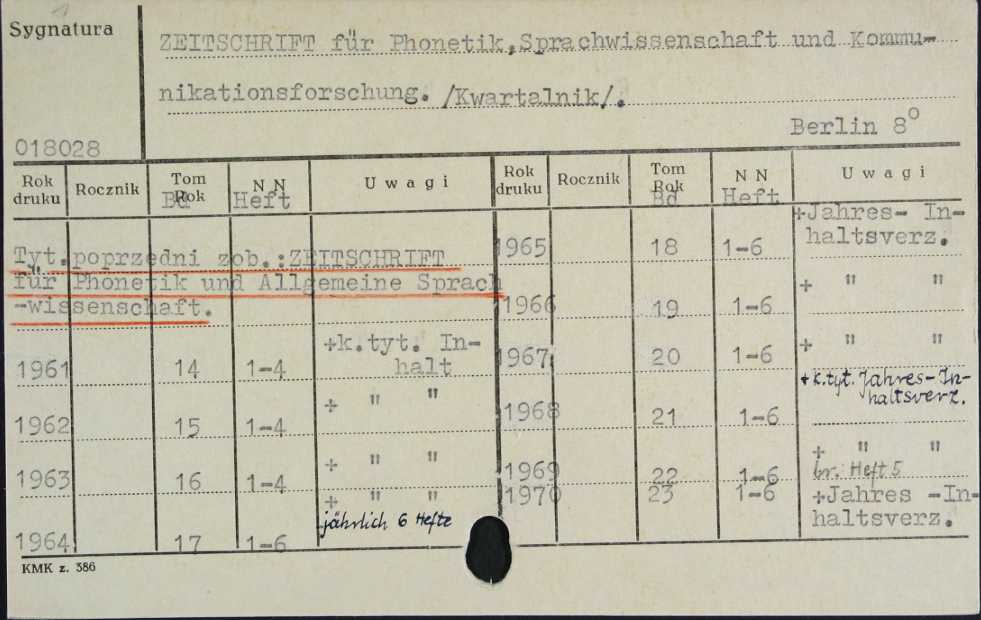 Sygnatura
ZEITSCHRIFT für Phonetik,Sprachwissenschaft und Kommu-
nikationsforschung. /Kwartalnik/.
Berlin 8º
018028
Rok druku Rocznik Tom Rok Bd N N Heft Uwagi Rok druku Rocznik Tom Rok Bd N N Heft Uwagi
Tyt. poprzedni zob.:ZEITSCHRIFT
für Phonetik und Allgemeine Sprach
-wissenschaft.
1961 14 1-4 +k.tyt. In-
halt
1962 15 1-4 + " "
1963 16 1-4 + " "
+ " "
jährlich 6 Hefte
1964 17 1-6
1965 18 1-6 +Jahres- In-
haltsverz.
1966 19 1-6 + " "
1967 20 1-6 + " "
1968 21 1-6 +k.tyt. Jahres-In-
haltsverz.
1969 22 1-6 + " "
br. Heft 5
1970 23 1-6 +Jahres -In-
haltsverz.
KMK z. 386